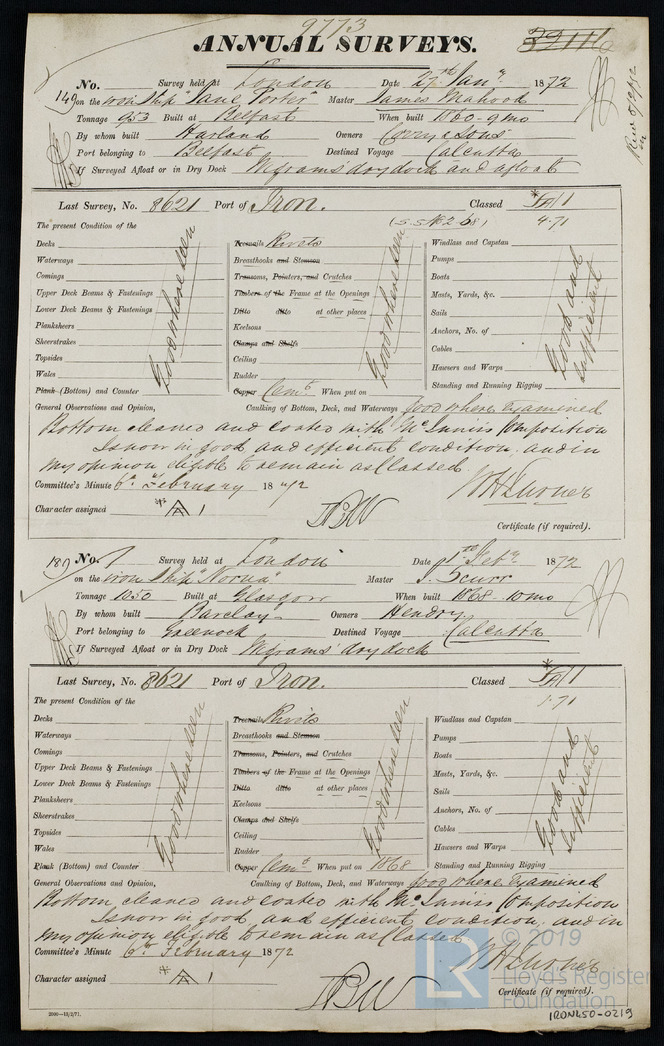 9773
ANNUAL SURVEYS.
149 No. Survey held at London Date 27th Jany 1872
on the iron Ship "Jane Porter" Master James Mahood
Tonnage 953 Built at Belfast When built 1860-9mo
By whom built Harland Owners Corry & Sons
Port belonging to Belfast Destined Voyage Calcutta
If Surveyed Afloat or in Dry Dock Wigrams dry dock and afloat
Last Survey, No. 8621 Port of Iron. Classed A 1
4.71
The present Condition of the
Decks
Waterways
Comings
Upper Deck Beams & Fastenings
Lower Deck Beams & Fastenings
Planksheers
Sheerstrakes
Topsides
Wales
Plank (Bottom) and Counter
Good where seen
Treenails Rivets
Breasthooks and Stemson
Transoms, Pointers, and Crutches
Timbers of the Frame at the Openings
Ditto ditto at other places
Keelsons
Clamps and Shelfs
Ceiling
Rudder
Copper Cemt. When put on
Good where seen
Windlass and Capstan
Pumps
Boats
Masts, Yards, &c.
Sails
Anchors, No. of
Cables
Hawsers and Warps
Standing and Running Rigging
Good and sufficient
General Observations and Opinion, Caulking of Bottom, Deck, and Waterways good where examined
Bottom cleaned and coated with McInnis Composition
Is now in good and efficient condition and in
my opinion eligible to remain as Classed.
Committee's Minute 6th February 1872
Character assigned A 1
Certificate (if required).
189 No. Survey held at London Date 1st Feby 1872
on the iron Ship "Norna" Master J. Scurr
Tonnage 1050 Built at Glasgow When built 1868-10mo
By whom built Barclay Owners Hendry
Port belonging to Greenock Destined Voyage Calcutta
If Surveyed Afloat or in Dry Dock Wigrams' dry dock
Last Survey, No. 8621 Port of Iron. Classed A 1
1.71
The present Condition of the
Decks
Waterways
Comings
Upper Deck Beams & Fastenings
Lower Deck Beams & Fastenings
Planksheers
Sheerstrakes
Topsides
Wales
Plank (Bottom) and Counter
Good where seen
Treenails Rivets
Breasthooks and Stemson
Transoms, Pointers, and Crutches
Timbers of the Frame at the Openings
Ditto ditto at other places
Keelsons
Clamps and Shelfs
Ceiling
Rudder
Copper Cemt. When put on 1868
Good where seen
Windlass and Capstan
Pumps
Boats
Masts, Yards, &c.
Sails
Anchors, No. of
Cables
Hawsers and Warps
Standing and Running Rigging
Good and sufficient
General Observations and Opinion, Caulking of Bottom, Deck, and Waterways good where examined
Bottom, cleaned and coated with McInnis Composition
Is now in good and efficient condition and in
my opinion eligible to remain as Classed
Committee's Minute 6th February 1872
Character assigned A 1
Certificate (if required).
2000-13/2/71.
© 2019
LR
Lloyd's Register
Foundation
IRON450-0219